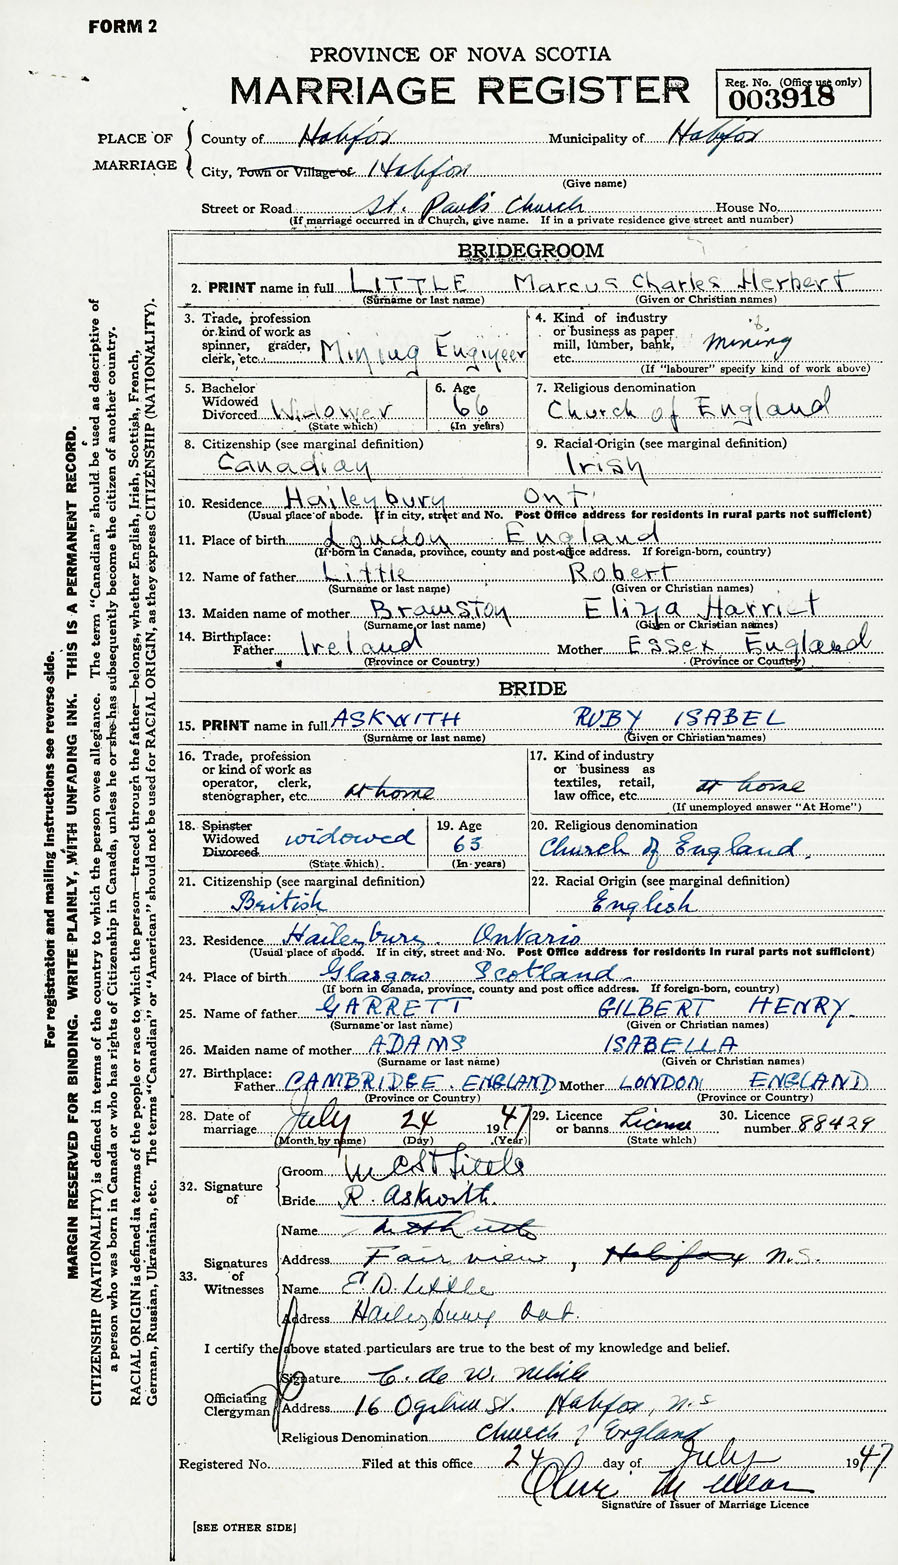 FORM 2
PROVINCE OF NOVA SCOTIA
MARRIAGE REGISTER
Reg. No. (Office use only)
003918
PLACE OF MARRIAGE
County of Halifax Municipality of Halifax
City, Town or Village of Halifax
(Give name)
Street or Road St. Paul's Church House No.
(If marriage occurred in a Church, give name. If in a private residence give street and number)
BRIDEGROOM
2. PRINT name in full LITTLE Marcus Charles Herbert
(Surname or last name) (Given or Christian names)
3. Trade, profession or kind of work as spinner, grader, clerk, etc. Mining Engineer
4. Kind of industry or business as paper mill, lumber, bank, etc. mining
(If "labourer" specify kind of work above)
5. Bachelor Widowed Divorced Widower
(State which)
6. Age 66
(In years)
7. Religious denomination
Church of England
8. Citizenship (see marginal definition)
Canadian
9. Racial Origin (see marginal definition)
Irish
10. Residence Haileybury Ont.
(Usual place of abode. If in city, street and No. Post Office address for residents in rural parts not sufficient)
11. Place of birth London England
(If born in Canada, province, county and post office address. If foreign-born, country)
12. Name of father Little Robert
(Surname or last name) (Given or Christian names)
13. Maiden name of mother Bramston Eliza Harriet
(Surname or last name) (Given or Christian names)
14. Birthplace:
Father Ireland Mother Essex England
(Province or Country) (Province or Country)
BRIDE
15. PRINT name in full ASKWITH RUBY ISABEL
(Surname or last name) (Given or Christian names)
16. Trade, profession or kind of work as operator, clerk, stenographer, etc. at home
17. Kind of industry or business as textiles, retail, law office, etc. at home
(If unemployed answer "At Home")
18. Spinster Widowed Divorced widowed
(State which)
19. Age 63
(In years)
20. Religious denomination
Church of England.
21. Citizenship (see marginal definition)
British
22. Racial Origin (see marginal definition)
English
23. Residence Haileybury. Ontario
(Usual place of abode. If in city, street and No. Post Office address for residents in rural parts not sufficient)
24. Place of birth Glasgow Scotland.
(If born in Canada, province, county and post office address. If foreign-born, country)
25. Name of father GARRETT GILBERT HENRY.
(Surname or last name) (Given or Christian names)
26. Maiden name of mother ADAMS ISABELLA
(Surname or last name) (Given or Christian names)
27. Birthplace:
Father CAMBRIDGE. ENGLAND Mother LONDON ENGLAND
(Province or Country) (Province or Country)
28. Date of marriage July 24 1947
(Month by name) (Day) (Year)
29. Licence or banns License
(State which)
30. Licence number 88429
32. Signature of
Groom M C H Little
Bride R. Askwith.
33. Signatures of Witnesses
Name
Address Fairview, Halifax N.S.
Name E D Little
Address Haileybury Ont.
I certify the above stated particulars are true to the best of my knowledge and belief.
Officiating Clergyman
Signature C. de W.
Address 16 Ogilvie St. Halifax, N.S
Religious Denomination Church of England
Registered No. Filed at this office 24 day of July 1947
Signature of Issuer of Marriage Licence
[SEE OTHER SIDE]
For registration and mailing instructions see reverse side.
MARGIN RESERVED FOR BINDING. WRITE PLAINLY, WITH UNFADING INK. THIS IS A PERMANENT RECORD.
CITIZENSHIP (NATIONALITY) is defined in terms of the country to which the person owes allegiance. The term "Canadian" should be used as descriptive of
a person who was born in Canada or who has rights of Citizenship in Canada, unless he or she has subsequently become the citizen of another country.
RACIAL ORIGIN is defined in terms of the people or race to which the person—traced through the father—belongs, whether English, Irish, Scottish, French,
German, Russian, Ukrainian, etc. The terms "Canadian" or "American" should not be used for RACIAL ORIGIN, as they express CITIZENSHIP (NATIONALITY).